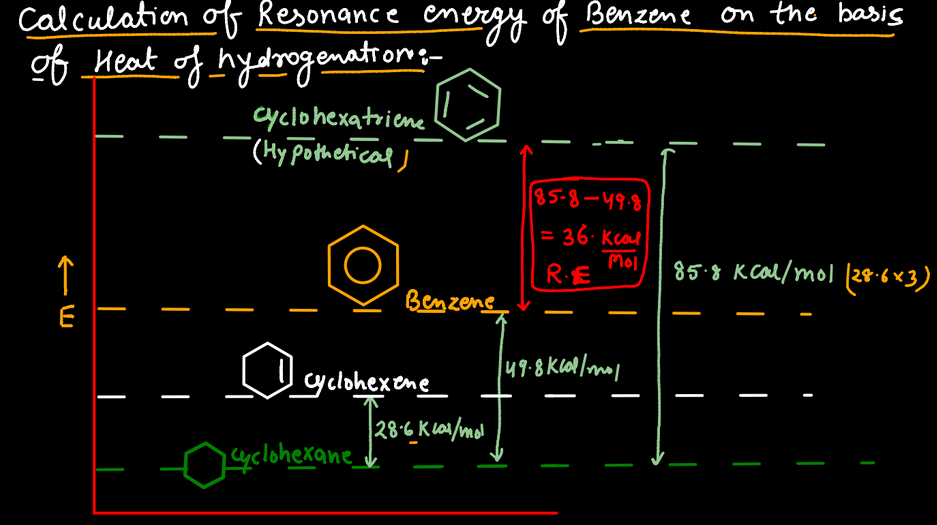 Calculation of Resonance energy of Benzene on the basis
of Heat of hydrogenation:-
cyclohexatriene
(Hypothetical)
85.8-49.8
= 36. Kcal/mol
R.E
85.8 KCal/mol (28.6x3)
E
Benzene
49.8 KCal/mol
cyclohexene
28.6 KCal/mol
cyclohexane